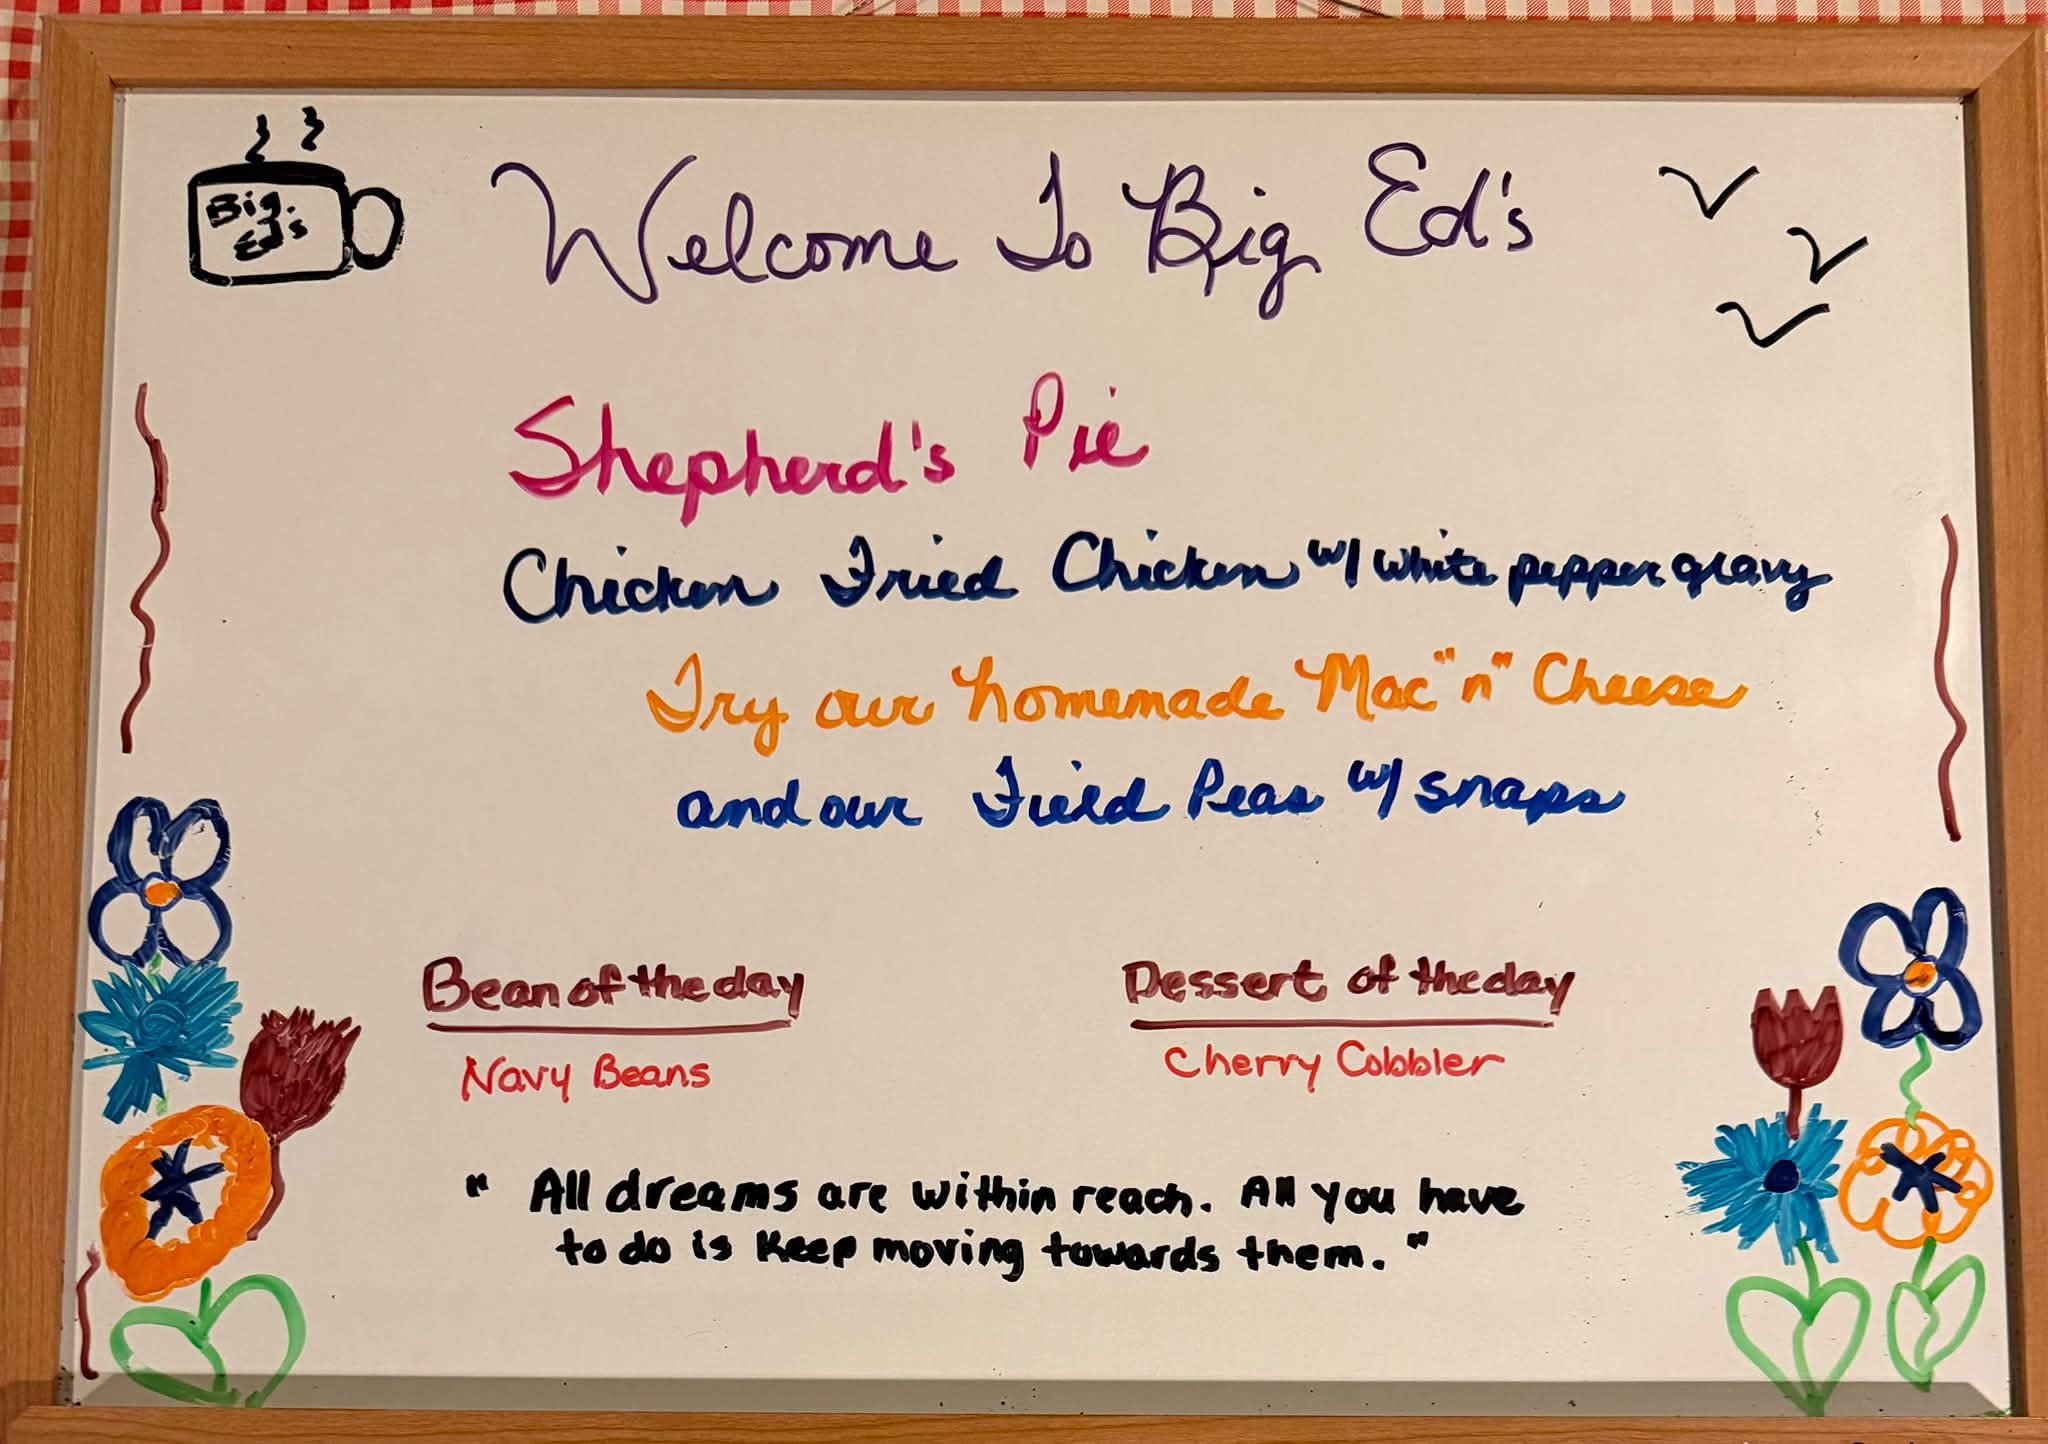 Big
Ed's
Welcome To Big Ed's
Shepherd's Pie
Chicken Fried Chicken w/ white pepper gravy
Try our homemade Mac "n" Cheese
and our Field Peas w/ snaps
Bean of the day
Navy Beans
Dessert of the day
Cherry Cobbler
" All dreams are within reach. All you have
to do is keep moving towards them. "